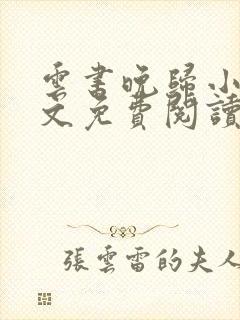 雲書晚歸小
文免費閱讀
張雲雷的夫人